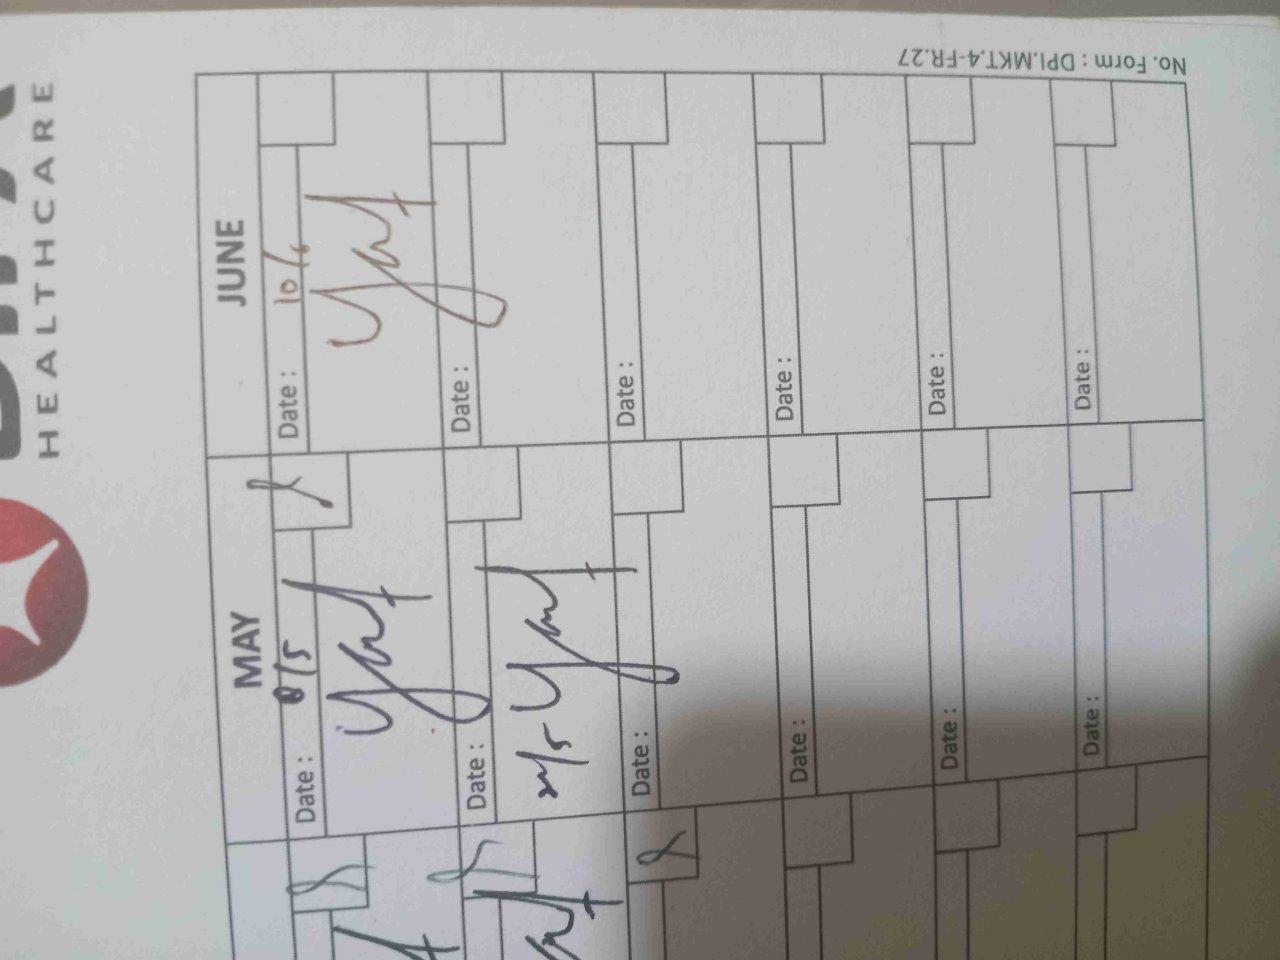 HEALTHCARE
MAY
JUNE
Date : 8/5
Date : 10/6
Date :
Date :
22/5
Date :
Date :
Date :
Date :
Date :
Date :
Date :
Date :
No. Form : DPI.MKT.4-FR.27